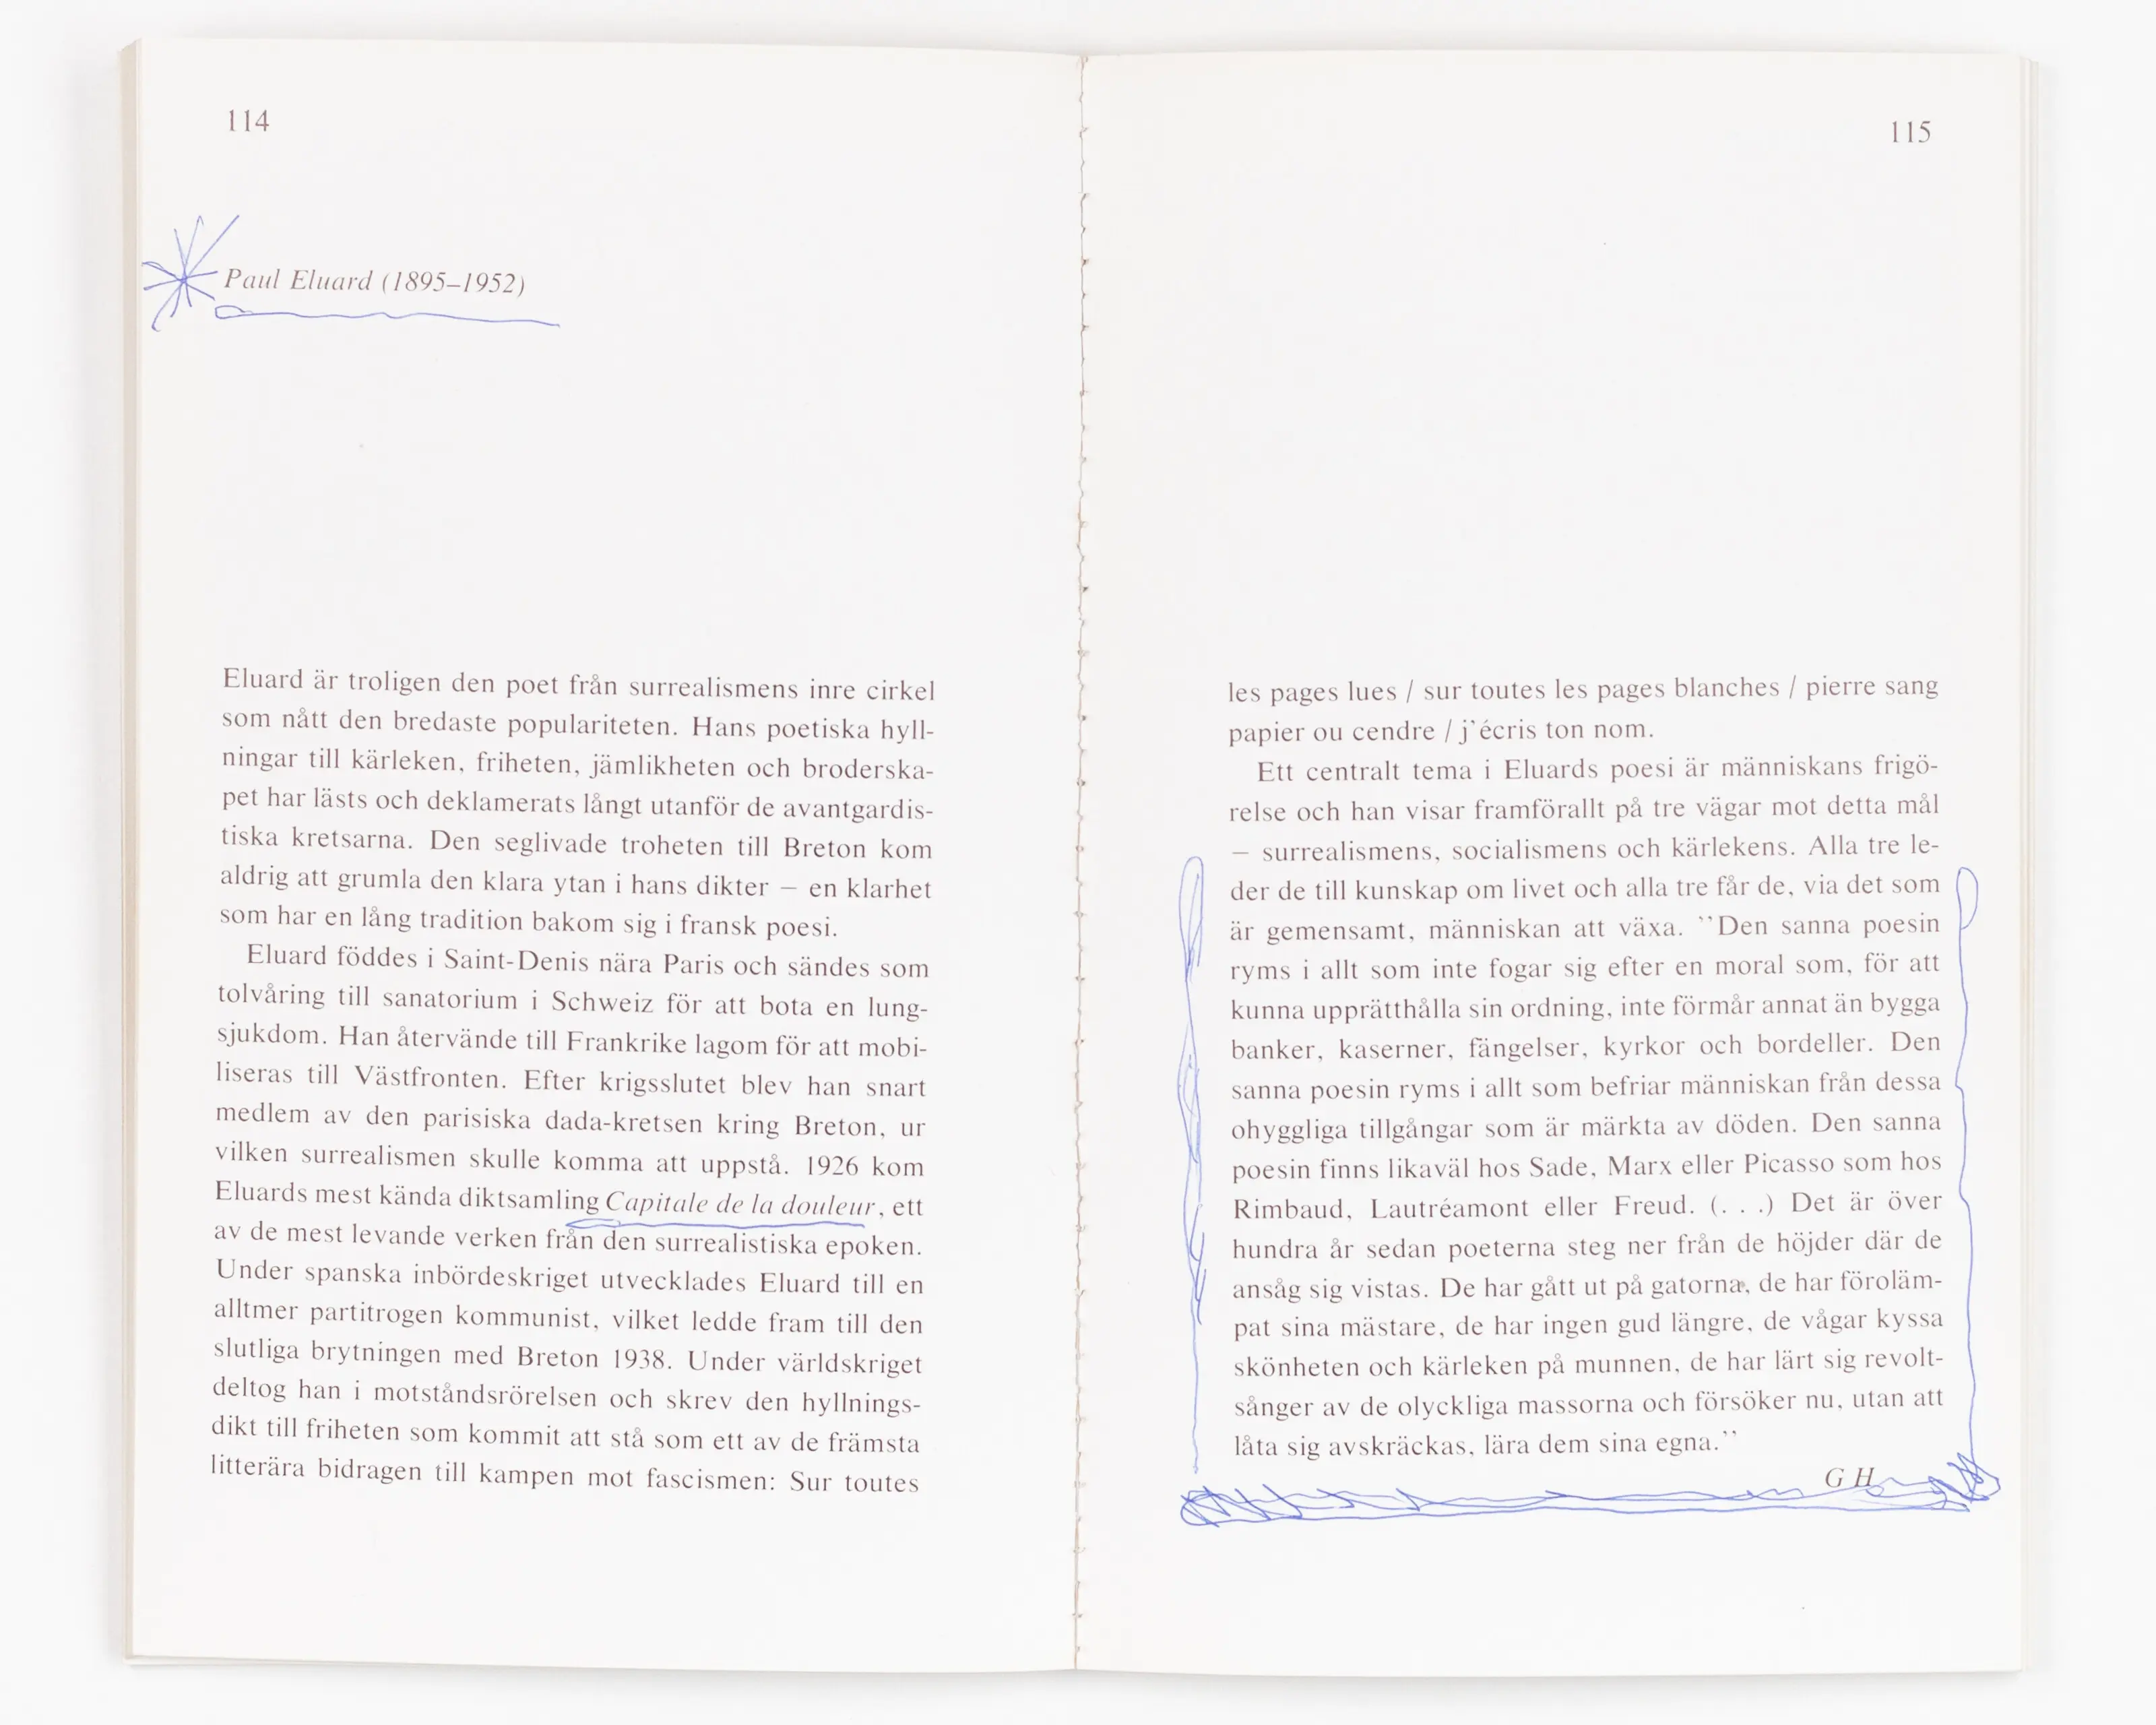 114
Paul Eluard (1895–1952)
Eluard är troligen den poet från surrealismens inre cirkel
som nått den bredaste populariteten. Hans poetiska hyll-
ningar till kärleken, friheten, jämlikheten och broderska-
pet har lästs och deklamerats långt utanför de avantgardis-
tiska kretsarna. Den seglivade troheten till Breton kom
aldrig att grumla den klara ytan i hans dikter – en klarhet
som har en lång tradition bakom sig i fransk poesi.
Eluard föddes i Saint-Denis nära Paris och sändes som
tolvåring till sanatorium i Schweiz för att bota en lung-
sjukdom. Han återvände till Frankrike lagom för att mobi-
liseras till Västfronten. Efter krigsslutet blev han snart
medlem av den parisiska dada-kretsen kring Breton, ur
vilken surrealismen skulle komma att uppstå. 1926 kom
Eluards mest kända diktsamling Capitale de la douleur, ett
av de mest levande verken från den surrealistiska epoken.
Under spanska inbördeskriget utvecklades Eluard till en
alltmer partitrogen kommunist, vilket ledde fram till den
slutliga brytningen med Breton 1938. Under världskriget
deltog han i motståndsrörelsen och skrev den hyllnings-
dikt till friheten som kommit att stå som ett av de främsta
litterära bidragen till kampen mot fascismen: Sur toutes
115
les pages lues / sur toutes les pages blanches / pierre sang
papier ou cendre / j'écris ton nom.
Ett centralt tema i Eluards poesi är människans frigö-
relse och han visar framförallt på tre vägar mot detta mål
– surrealismens, socialismens och kärlekens. Alla tre le-
der de till kunskap om livet och alla tre får de, via det som
är gemensamt, människan att växa. ''Den sanna poesin
ryms i allt som inte fogar sig efter en moral som, för att
kunna upprätthålla sin ordning, inte förmår annat än bygga
banker, kaserner, fängelser, kyrkor och bordeller. Den
sanna poesin ryms i allt som befriar människan från dessa
ohyggliga tillgångar som är märkta av döden. Den sanna
poesin finns likaväl hos Sade, Marx eller Picasso som hos
Rimbaud, Lautréamont eller Freud. (. . .) Det är över
hundra år sedan poeterna steg ner från de höjder där de
ansåg sig vistas. De har gått ut på gatorna, de har föroläm-
pat sina mästare, de har ingen gud längre, de vågar kyssa
skönheten och kärleken på munnen, de har lärt sig revolt-
sånger av de olyckliga massorna och försöker nu, utan att
låta sig avskräckas, lära dem sina egna.''
G H